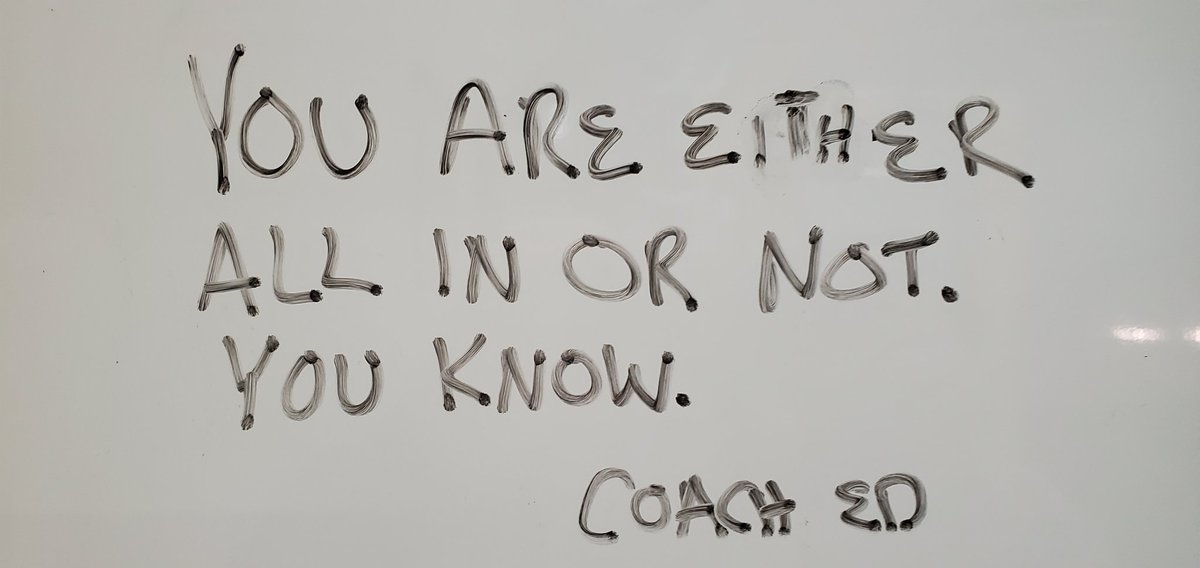 YOU ARE EITHER
ALL IN OR NOT.
YOU KNOW.
COACH ED